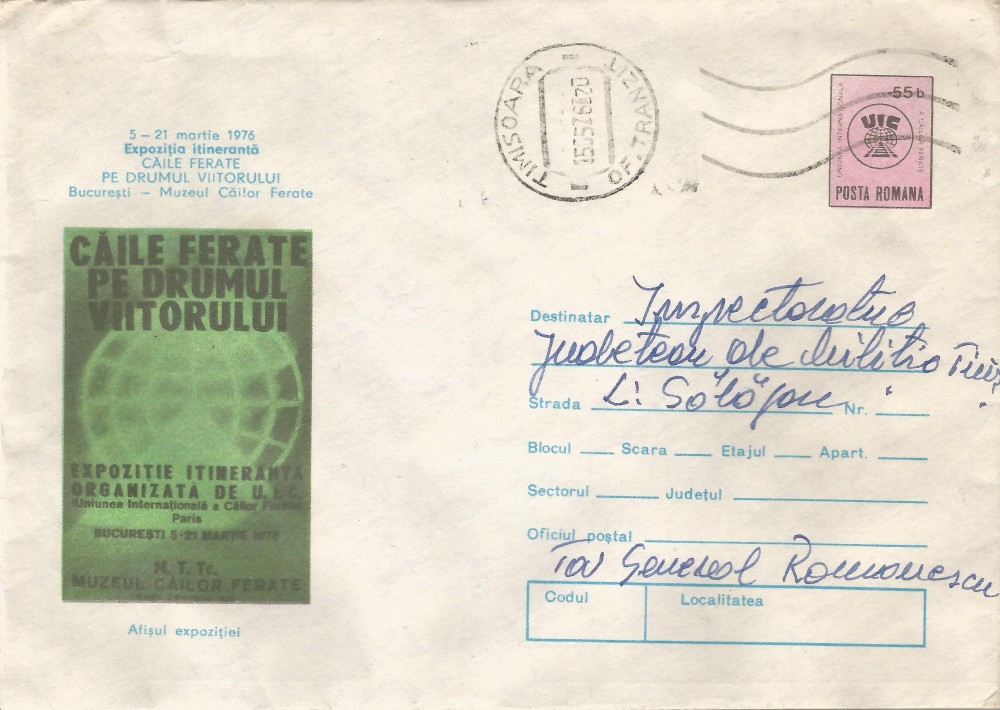 5 – 21 martie 1976
Expoziția itinerantă
CĂILE FERATE
PE DRUMUL VIITORULUI
București – Muzeul Căilor Ferate
CĂILE FERATE
PE DRUMUL
VIITORULUI
EXPOZIȚIE ITINERANTĂ
ORGANIZATĂ DE U.I.C.
Uniunea Internațională a Căilor Ferate
Paris
BUCUREȘTI 5-21 MARTIE 1976
M. T. Tc.
MUZEUL CĂILOR FERATE
Afișul expoziției
TIMISOARA
OF. TRANZIT
55 b
UNIUNEA INTERNAȚIONALĂ
A CĂILOR FERATE
UIC
POSTA ROMANA
Destinatar Inspectoratul
Județean de Miliția Timiș
Strada L: Sălăjan Nr.
Blocul Scara Etajul Apart.
Sectorul Județul
Oficiul poștal
Tov General Romanescu
Codul Localitatea